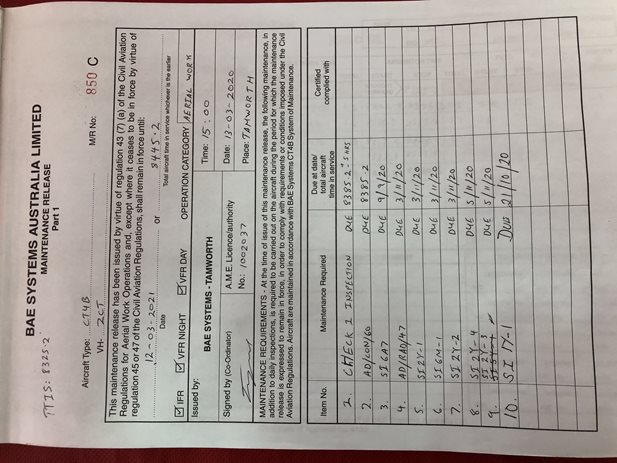 TTIS: 8325.2
BAE SYSTEMS AUSTRALIA LIMITED
MAINTENANCE RELEASE
Part 1
M/R No: 850 C
Aircraft Type: CT4B
VH- ZCT
This maintenance release has been issued by virtue of regulation 43 (7) (a) of the Civil Aviation
Regulations for Aerial Work Operations and, except where it ceases to be in force by virtue of
regulation 45 or 47 of the Civil Aviation Regulations, shall remain in force until:
12-03-2021 or 8445.2
Date Total aircraft time in service whichever is the earlier
☑ IFR ☑ VFR NIGHT ☑ VFR DAY OPERATION CATEGORY AERIAL WORK
Issued by: BAE SYSTEMS - TAMWORTH Time: 15:00
Signed by (Co-ordinator) A.M.E. Licence/authority Date: 13-03-2020
No.: 1002037 Place: TAMWORTH
MAINTENANCE REQUIREMENTS - At the time of issue of this maintenance release, the following maintenance, in
addition to daily inspections, is required to be carried out on the aircraft during the period for which the maintenance
release is expressed to remain in force, in order to comply with requirements or conditions imposed under the Civil
Aviation Regulations. Aircraft are maintained in accordance with BAE Systems CT4B System of Maintenance.
Item No. Maintenance Required Due at date/ total aircraft time in service Certified complied with
CHECK 2 INSPECTION DUE 8385.2 HRS
2. AD/CON/60 DUE 8385.2
3. SI 6A7 DUE 9/9/20
4. AD/RAD/47 DUE 3/11/20
5. SI 2Y-1 DUE 3/11/20
6. SI 6M-1 DUE 3/11/20
7. SI 2Y-2 DUE 3/11/20
8. SI 2Y-4 DUE 5/11/20
9. SI 2Y-3 DUE 5/11/20
10. SI 1Y-1 DUE 21/10/20